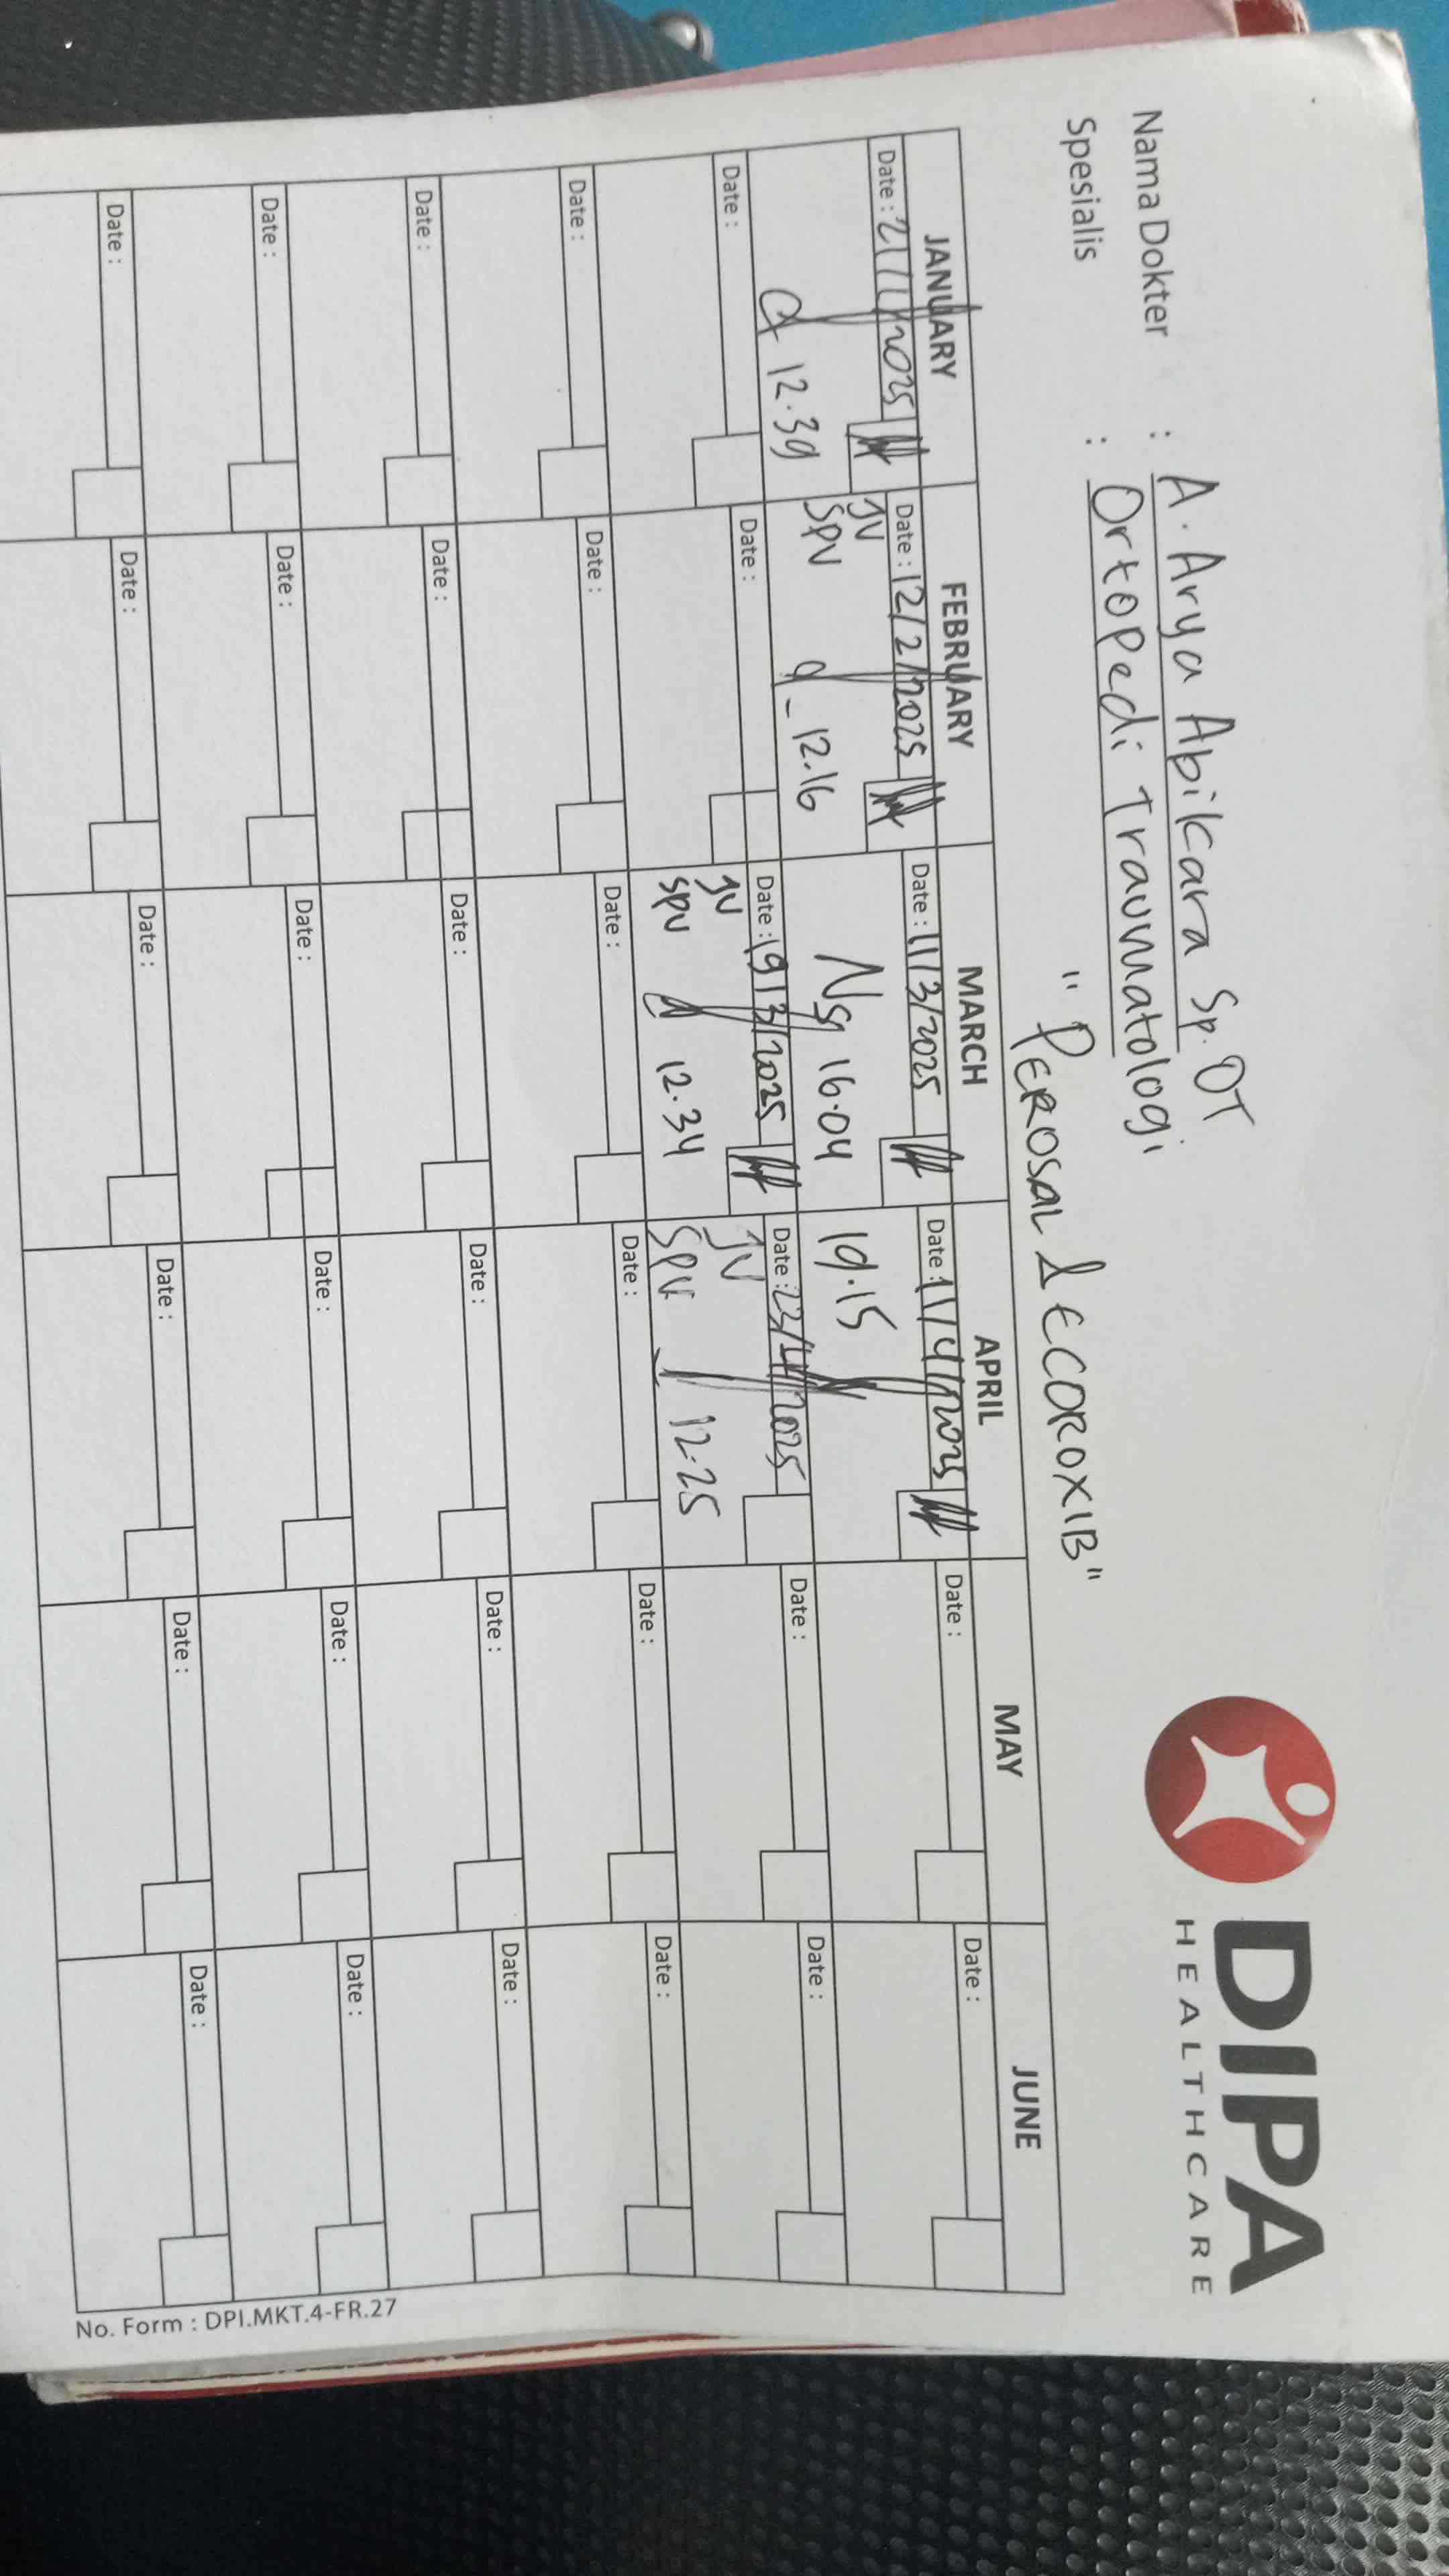 DIPA
HEALTHCARE
Nama Dokter : A. Arya Abikara Sp. OT
Spesialis : Ortopedi Traumatologi
"PEROSAL & ECOROXIB"
JANUARY FEBRUARY MARCH APRIL MAY JUNE
Date : 21/1/2025 Date : 12/2/2025 Date : 11/3/2025 Date : 11/4/2025 Date : Date :
12.39 JV SPV 12.16 16.04 19.15
Date : Date : Date : 19/3/2025 Date : 23/4/2025 Date : Date :
JV SPV 12.34 JV SPV 12.25
Date : Date : Date : Date : Date : Date :
Date : Date : Date : Date : Date : Date :
Date : Date : Date : Date : Date : Date :
Date : Date : Date : Date : Date : Date :
No. Form : DPI.MKT.4-FR.27